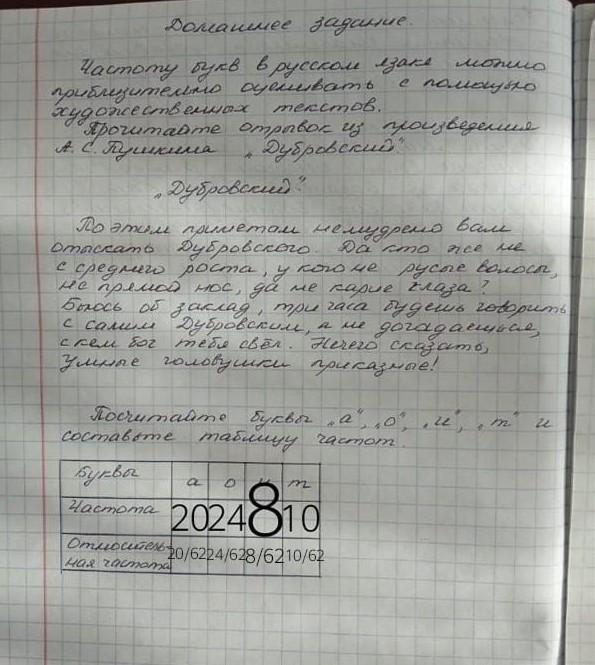 Домашнее задание.
Частоту букв в русском языке можно
приблизительно оценивать с помощью
художественных текстов.
Прочитайте отрывок из произведения
А. С. Пушкина „Дубровский"
„Дубровский".
По этим приметам немудрено вам
отыскать Дубровского. Да кто же не
с среднего роста, у кого не русые волосы,
не прямой нос, да не карие глаза?
Бьюсь об заклад, три часа будешь говорить
с самим Дубровским, а не догадаешься,
с кем бог тебя свёл. Нечего сказать,
умные головушки приказные!
Посчитайте буквы „а", „о", „и", „т" и
составьте таблицу частот.
Буквы а о т
Частота 20 24 8 10
Относитель-
ная частота 20/62 24/62 8/62 10/62